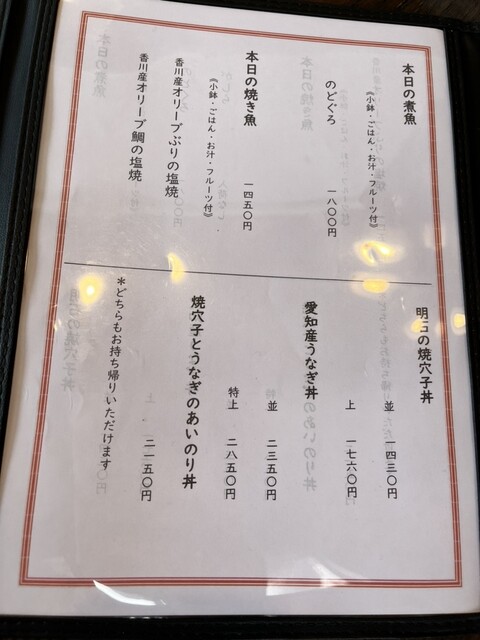 本日の煮魚
《小鉢・ごはん・お汁・フルーツ付》
のどぐろ 一八〇〇円
本日の焼き魚 一四五〇円
《小鉢・ごはん・お汁・フルーツ付》
香川産オリーブぶりの塩焼
香川産オリーブ鯛の塩焼
明石の焼穴子丼
並 一四三〇円
上 一七六〇円
愛知産うなぎ丼
並 二三五〇円
特上 二八五〇円
焼穴子とうなぎのあいのり丼
二一五〇円
*どちらもお持ち帰りいただけます